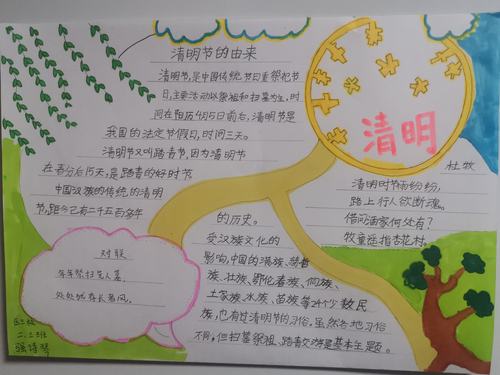 清明节的由来
清明节，是中国传统节日重祭祀节
日，主要活动以祭祖和扫墓为主，时
间在阳历4月5日前右，清明节是
我国的法定节假日，时间三天。
清明节又叫踏青节，因为清明节
在春分后15天，是踏青的好时节
中国汉族的传统的清明
节，距今已有二千五百多年
的历史。
受汉族文化的
影响，中国的满族、赫哲
族、壮族、鄂伦春族、侗族、
土家族、水族、苗族等24个少数民
族，也有过清明节的习俗，虽然各地习俗
不同，但扫墓祭祖、踏青交游是基本主题。
清明
杜牧
清明时节雨纷纷，
路上行人欲断魂。
借问酒家何处有？
牧童遥指杏花村。
对联
年年祭扫先人墓，
处处
长
风。
二、三班
强诗琴